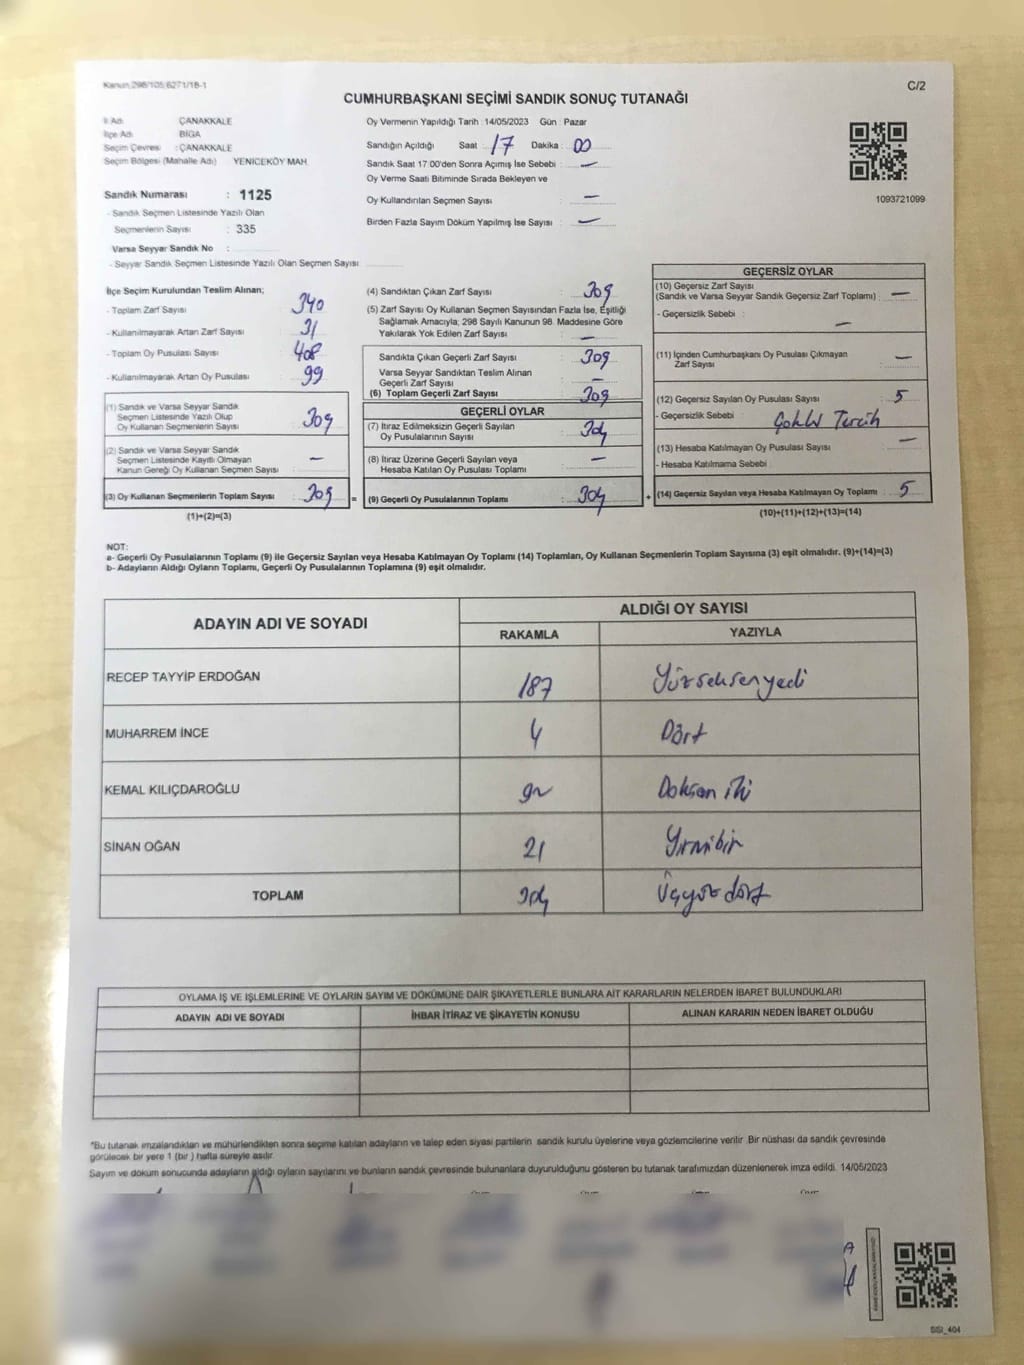 Kanun:298/105;6271/18-1
C/2
CUMHURBAŞKANI SEÇİMİ SANDIK SONUÇ TUTANAĞI
İl Adı : ÇANAKKALE
İlçe Adı : BİGA
Seçim Çevresi : ÇANAKKALE
Seçim Bölgesi (Mahalle Adı) : YENİCEKÖY MAH.
Sandık Numarası : 1125
- Sandık Seçmen Listesinde Yazılı Olan
Seçmenlerin Sayısı : 335
Varsa Seyyar Sandık No :
- Seyyar Sandık Seçmen Listesinde Yazılı Olan Seçmen Sayısı:
Oy Vermenin Yapıldığı Tarih :14/05/2023 Gün : Pazar
Sandığın Açıldığı Saat : 17 Dakika : 00
Sandık Saat 17:00'den Sonra Açılmış İse Sebebi : —
Oy Verme Saati Bitiminde Sırada Bekleyen ve
Oy Kullandırılan Seçmen Sayısı : —
Birden Fazla Sayım Döküm Yapılmış İse Sayısı : —
1093721099
İlçe Seçim Kurulundan Teslim Alınan;
- Toplam Zarf Sayısı : 340
- Kullanılmayarak Artan Zarf Sayısı : 31
- Toplam Oy Pusulası Sayısı : 408
- Kullanılmayarak Artan Oy Pusulası : 99
(1) Sandık ve Varsa Seyyar Sandık
Seçmen Listesinde Yazılı Olup
Oy Kullanan Seçmenlerin Sayısı : 309
(2) Sandık ve Varsa Seyyar Sandık
Seçmen Listesinde Kayıtlı Olmayan
Kanun Gereği Oy Kullanan Seçmen Sayısı : —
(3) Oy Kullanan Seçmenlerin Toplam Sayısı : 309
(1)+(2)=(3)
(4) Sandıktan Çıkan Zarf Sayısı : 309
(5) Zarf Sayısı Oy Kullanan Seçmen Sayısından Fazla İse, Eşitliği
Sağlamak Amacıyla; 298 Sayılı Kanunun 98. Maddesine Göre
Yakılarak Yok Edilen Zarf Sayısı : —
Sandıkta Çıkan Geçerli Zarf Sayısı : 309
Varsa Seyyar Sandıktan Teslim Alınan
Geçerli Zarf Sayısı : —
(6) Toplam Geçerli Zarf Sayısı : 309
GEÇERLİ OYLAR
(7) İtiraz Edilmeksizin Geçerli Sayılan
Oy Pusulalarının Sayısı : 304
(8) İtiraz Üzerine Geçerli Sayılan veya
Hesaba Katılan Oy Pusulası Toplamı : —
= (9) Geçerli Oy Pusulalarının Toplamı : 304
GEÇERSİZ OYLAR
(10) Geçersiz Zarf Sayısı
(Sandık ve Varsa Seyyar Sandık Geçersiz Zarf Toplamı) : —
- Geçersizlik Sebebi : —
(11) İçinden Cumhurbaşkanı Oy Pusulası Çıkmayan
Zarf Sayısı : —
(12) Geçersiz Sayılan Oy Pusulası Sayısı : 5
- Geçersizlik Sebebi Çoklu Tercih
(13) Hesaba Katılmayan Oy Pusulası Sayısı : —
- Hesaba Katılmama Sebebi :
+ (14) Geçersiz Sayılan veya Hesaba Katılmayan Oy Toplamı : 5
(10)+(11)+(12)+(13)=(14)
NOT:
a- Geçerli Oy Pusulalarının Toplamı (9) ile Geçersiz Sayılan veya Hesaba Katılmayan Oy Toplamı (14) Toplamları, Oy Kullanan Seçmenlerin Toplam Sayısına (3) eşit olmalıdır. (9)+(14)=(3)
b- Adayların Aldığı Oyların Toplamı, Geçerli Oy Pusulalarının Toplamına (9) eşit olmalıdır.
ADAYIN ADI VE SOYADI
ALDIĞI OY SAYISI
RAKAMLA YAZIYLA
RECEP TAYYİP ERDOĞAN 187 Yüzseksenyedi
MUHARREM İNCE 4 Dört
KEMAL KILIÇDAROĞLU 92 Doksan iki
SİNAN OĞAN 21 Yirmibir
TOPLAM 304 Üçyüz dört
OYLAMA İŞ VE İŞLEMLERİNE VE OYLARIN SAYIM VE DÖKÜMÜNE DAİR ŞİKAYETLERLE BUNLARA AİT KARARLARIN NELERDEN İBARET BULUNDUKLARI
ADAYIN ADI VE SOYADI İHBAR İTİRAZ VE ŞİKAYETİN KONUSU ALINAN KARARIN NEDEN İBARET OLDUĞU
*Bu tutanak imzalandıktan ve mühürlendikten sonra seçime katılan adayların ve talep eden siyasi partilerin sandık kurulu üyelerine veya gözlemcilerine verilir. Bir nüshası da sandık çevresinde
görülecek bir yere 1 (bir ) hafta süreyle asılır.
Sayım ve döküm sonucunda adayların aldığı oyların sayılarını ve bunların sandık çevresinde bulunanlara duyurulduğunu gösteren bu tutanak tarafımızdan düzenlenerek imza edildi. 14/05/2023
SISI_404